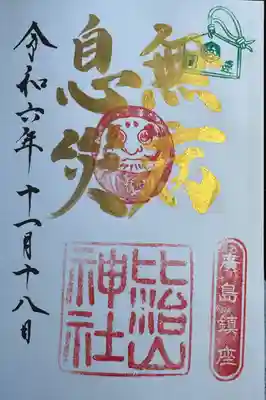 廣島鎮座
無病
息災
比治山
神社
令和六年 十一月十八日